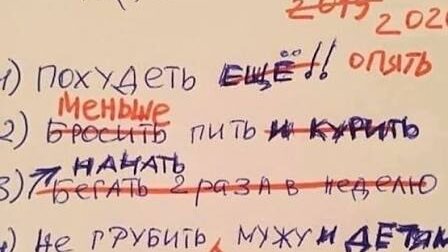 2019 2020
1) ПОХУДЕТЬ ЕЩЁ!! ОПЯТЬ
МЕНЬШЕ
2) БРОСИТЬ ПИТЬ И КУРИТЬ
НАЧАТЬ
3) БЕГАТЬ 2 РАЗА В НЕДЕЛЮ
4) НЕ ГРУБИТЬ МУЖУ И ДЕТЯМ